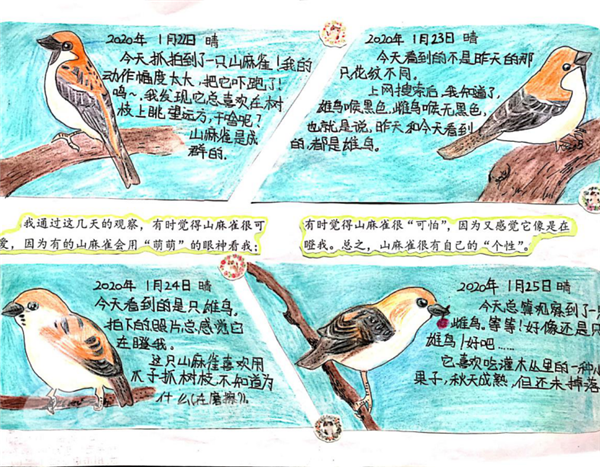 2020年 1月22日 晴
今天抓拍到了一只山麻雀!我的
动作幅度太大,把它吓跑了!
呜~,我发现它总喜欢在树
枝上眺望远方,干啥呢?
山麻雀是成
群的。
2020年 1月23日 晴
今天看到的不是昨天的那
只花纹不同。
上网搜索后,我知道了,
雄鸟喉黑色,雌鸟喉无黑色,
也就是说,昨天和今天看到
的,都是雄鸟。
我通过这几天的观察,有时觉得山麻雀很可
爱,因为有的山麻雀会用“萌萌”的眼神看我;
有时觉得山麻雀很“可怕”,因为又感觉它像是在
瞪我。总之,山麻雀很有自己的“个性”。
2020年 1月24日 晴
今天看到的是只雄鸟,
拍下的照片总感觉它
在瞪我。
这只山麻雀喜欢用
爪子抓树枝,不知道为
什么(在磨擦)。
2020年 1月25日 晴
今天总算观察到了一
雌鸟。等等!好像还是只
雄鸟!好吧……
它喜欢吃灌木丛里的一种小
果子,秋天成熟,但还未掉落